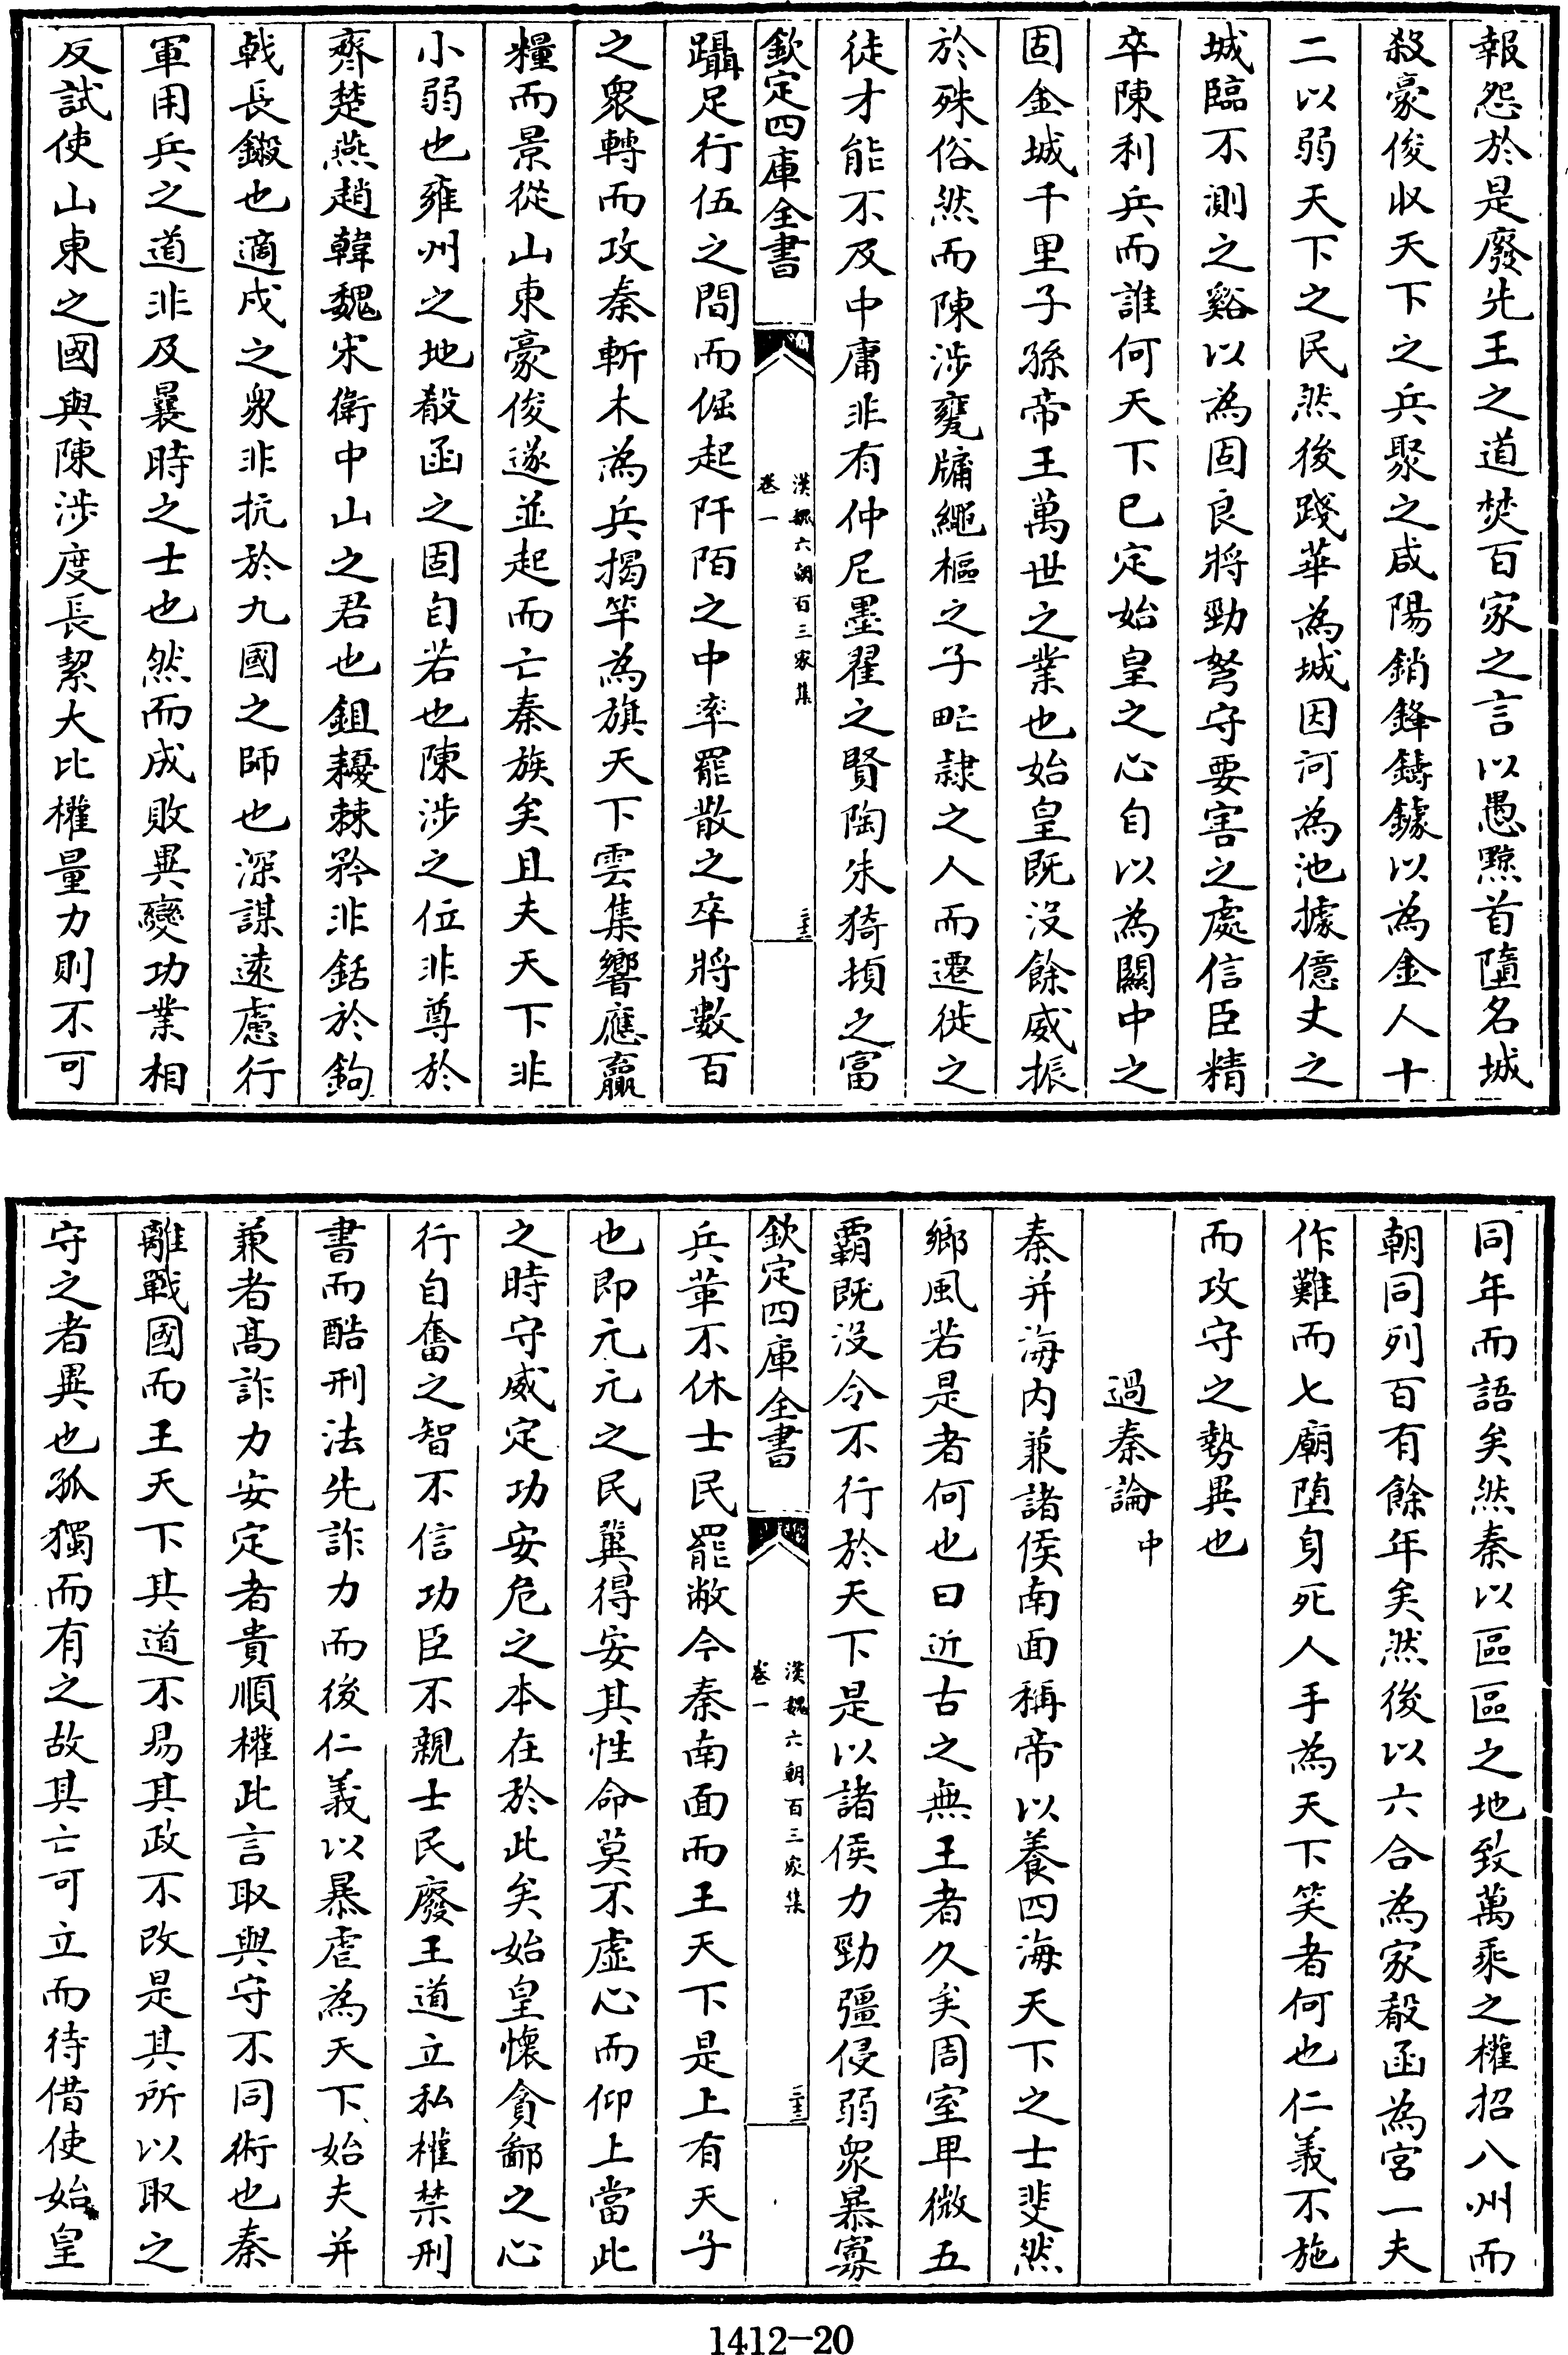 報怨於是廢先王之道焚百家之言以愚黔首隳名城
殺豪俊收天下之兵聚之咸陽銷鋒鑄鐻以為金人十
二以弱天下之民然後踐華為城因河為池據億丈之
城臨不測之谿以為固良將勁弩守要害之處信臣精
卒陳利兵而誰何天下已定始皇之心自以為關中之
固金城千里子孫帝王萬世之業也始皇既沒餘威振
於殊俗然而陳涉甕牖繩樞之子甿隷之人而遷徙之
徒才能不及中庸非有仲尼墨翟之賢陶朱猗頓之富
欽定四庫全書
漢魏六朝百三家集
卷一
躡足行伍之間而倔起阡陌之中率罷散之卒將數百
之衆轉而攻秦斬木為兵揭竿為旗天下雲集響應贏
糧而景從山東豪俊遂並起而亡秦族矣且夫天下非
小弱也雍州之地殽函之固自若也陳涉之位非尊於
齊楚燕趙韓魏宋衛中山之君也鉏耰棘矜非銛於鉤
戟長鎩也適戍之衆非抗於九國之師也深謀遠慮行
軍用兵之道非及曩時之士也然而成敗異變功業相
反試使山東之國與陳涉度長絜大比權量力則不可
同年而語矣然秦以區區之地致萬乘之權招八州而
朝同列百有餘年矣然後以六合為家殽函為宮一夫
作難而七廟墮身死人手為天下笑者何也仁義不施
而攻守之勢異也
過秦論中
秦并海內兼諸侯南面稱帝以養四海天下之士斐然
鄉風若是者何也曰近古之無王者久矣周室卑微五
霸既沒令不行於天下是以諸侯力勁彊侵弱衆暴寡
欽定四庫全書
漢魏六朝百三家集
卷一
兵革不休士民罷敝今秦南面而王天下是上有天子
也即元元之民冀得安其性命莫不虛心而仰上當此
之時守威定功安危之本在於此矣始皇懷貪鄙之心
行自奮之智不信功臣不親士民廢王道立私權禁刑
書而酷刑法先詐力而後仁義以暴虐為天下始夫并
兼者高詐力安定者貴順權此言取與守不同術也秦
離戰國而王天下其道不易其政不改是其所以取之
守之者異也孤獨而有之故其亡可立而待借使始皇
1412-20